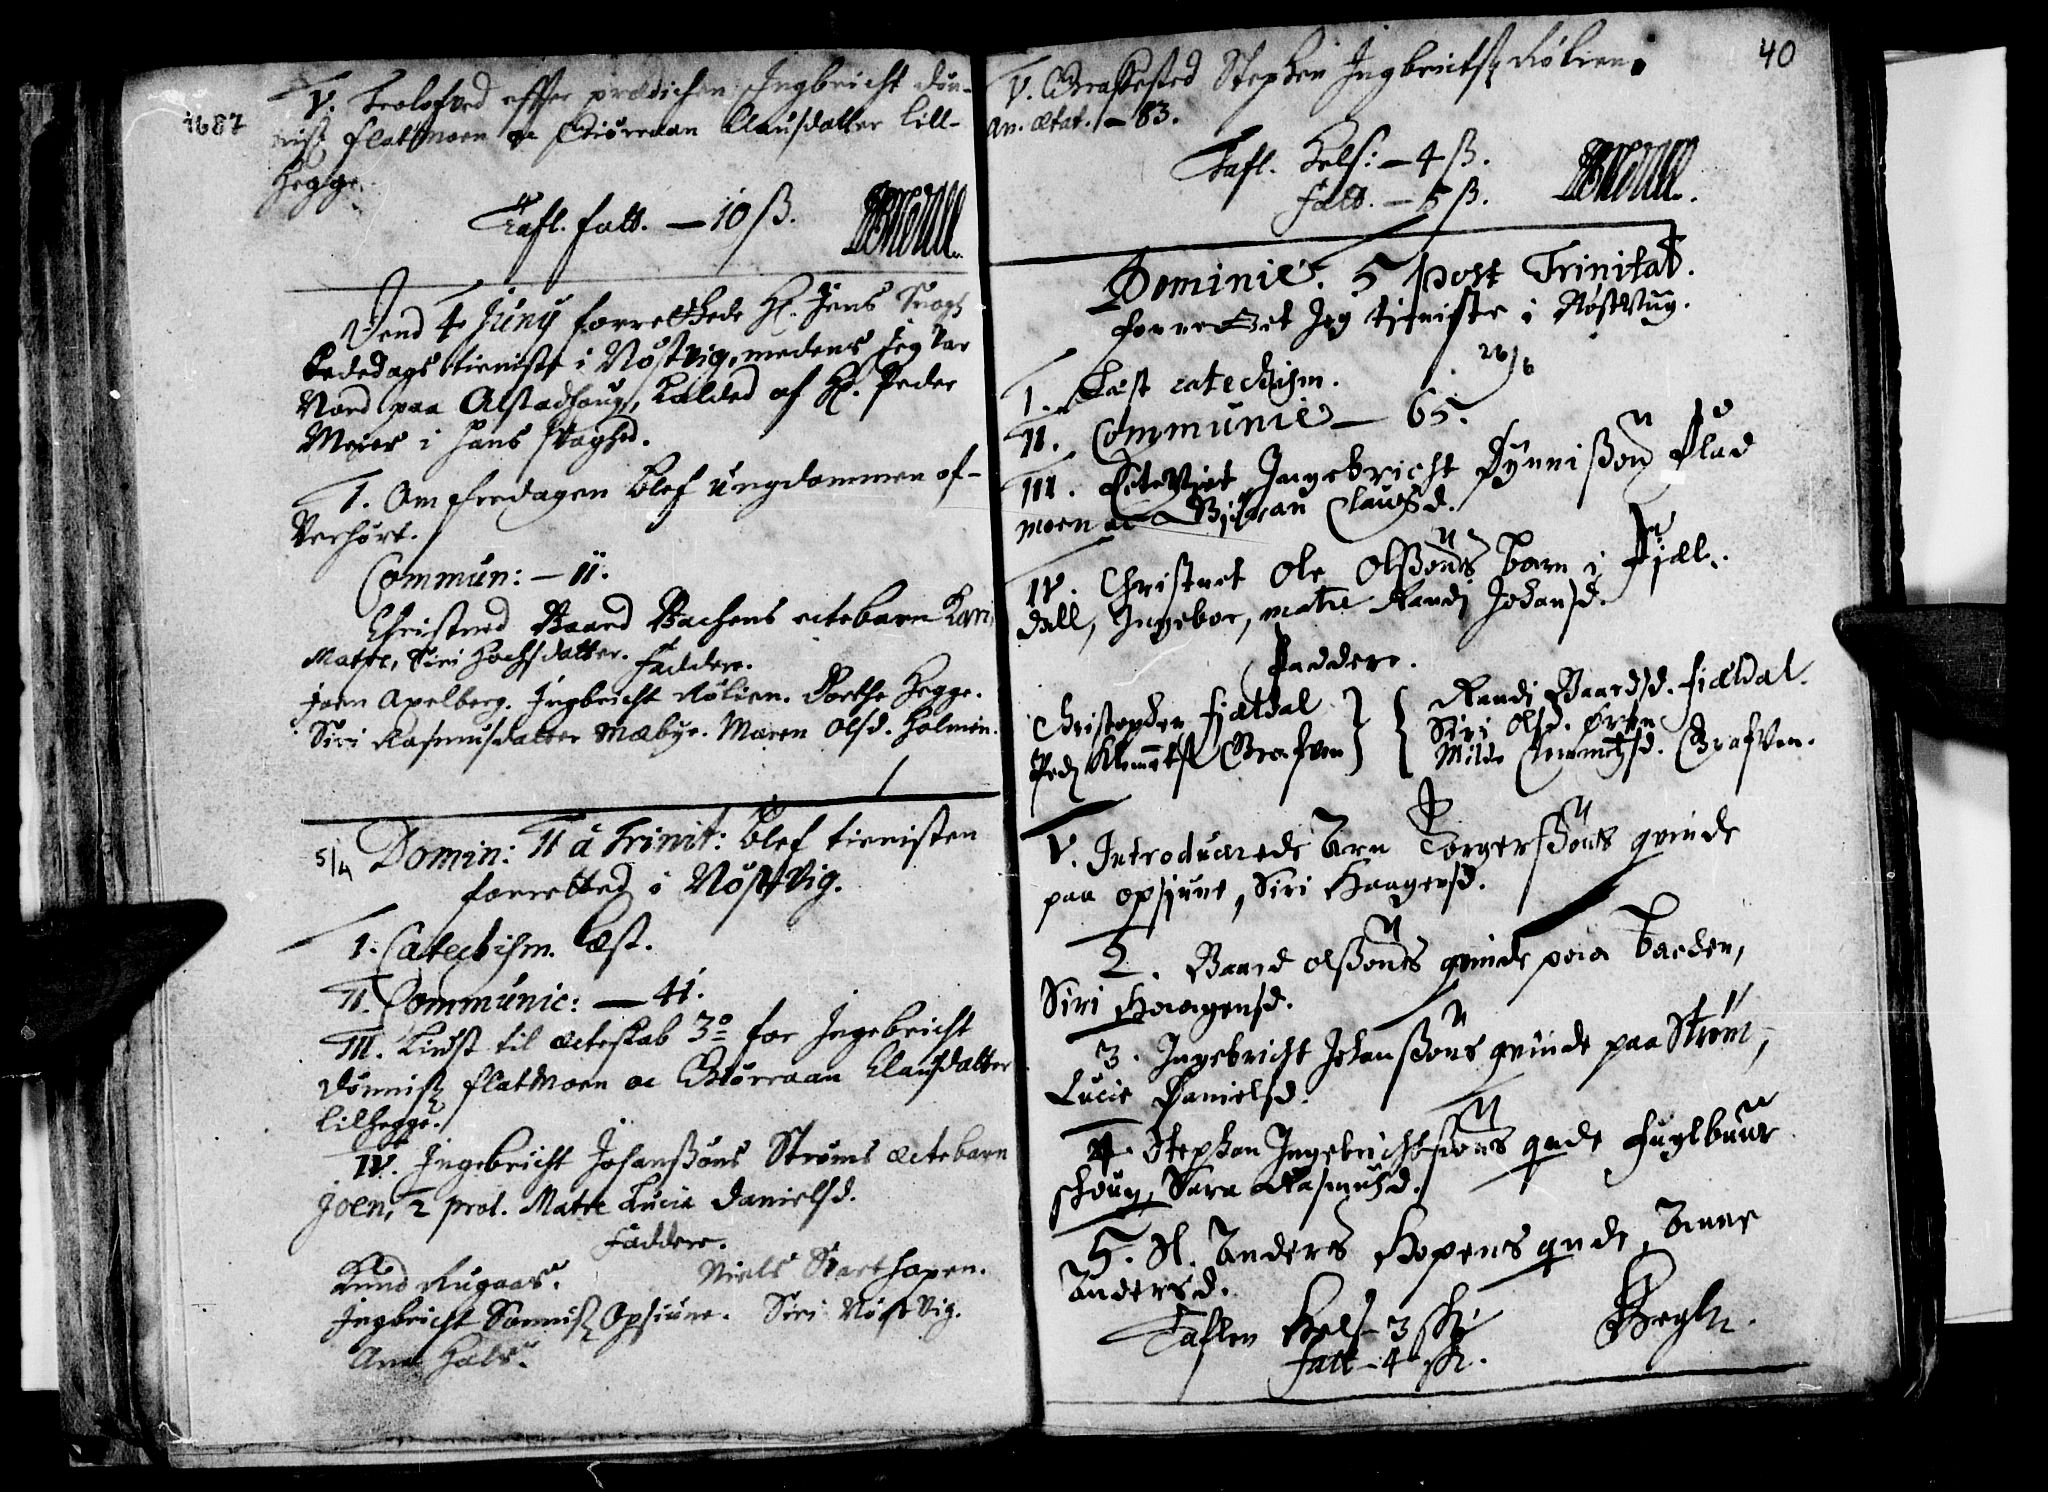 1687
V. Trolofved effter prædichen Ingbricht Dön-
niß Flatmoen oc Giörraan Clausdatter Lill-
Hegge.
Tafl. fatt. — 10 ß.
Dend 4 Junij forrettede Hr. Jens
Bededags tieniste i Nöstvig, medens Jeg var
Nord paa Alstadhoug, kalded af Hr. Peder
Meier i hans svaghed.
I. Om fredagen blef Ungdommen of-
verhört.
Commun: — 11.
Christned Baard Bachens ectebarn Kari,
Matre, Siri Hochsdatter. Faddere.
Joen Apelberg. Ingbricht Rölien. Dorthe Hegge.
Siri Rasmusdatter Mæbye. Maren Olsd. Holmen.
5/4 Domin: II à Trinit: blef tienisten
forretted i Nöstvig.
I. Catechism. læst.
II. Communic: — 41.
III. Liust til ecteskab 3º for Ingebricht
Dönniß Flatmoen oc Giörraan Clausdatter
Lilhegge.
IV. Ingebricht Johanßöns Ströms ectebarn
Joen, 2 prol. Matre Lucia Danielsd.
Faddere.
Knud Rugaas. Niels Hapen.
Ingbricht Sonniß Opsiune. Siri Nöstvig.
Ane Hals.
40
V. Begrafved Stephen Ingbrictß Rölien.
An. ætat. — 83.
Tafl. Hels: — 4 ß.
Fatt. — 5 ß.
Dominic. 5 post Trinitat.
forrettet Jeg tieniste i Nöstvug.
26/6
I. Læst catechism.
II. Communic — 65.
III. Ecteviet Ingebricht Dÿnnißön Flad
moen oc Giöran Clausd.
IV. Christnet Ole Olßöns barn i Fjæl-
dall, Ingebor, matre Randj Johansd.
Faddere.
Christopher Fjældal
Ped. Klemmetß Grafven
Randi Baardsd. Fjældal.
Siri Olsd. Örken
Milde Clemmetsd. Grafven.
V. Introducerede Arn Torgerßöns qvinde
paa Opsiune, Siri Haagensd.
2. Baard Olßöns qvinde paa Backen,
Siri Haagensd.
3. Ingebricht Johanßöns qvinde paa Ström,
Lucie Danielsd.
4. Stephan Ingebrichtßöns qnde Fuglbuur
schoug, Sara Rasmusd.
5. Sl. Anders Hopens qnde, Anne
Andersd.
Taflen Hels- 3 sk
Fatt- 4 sk.